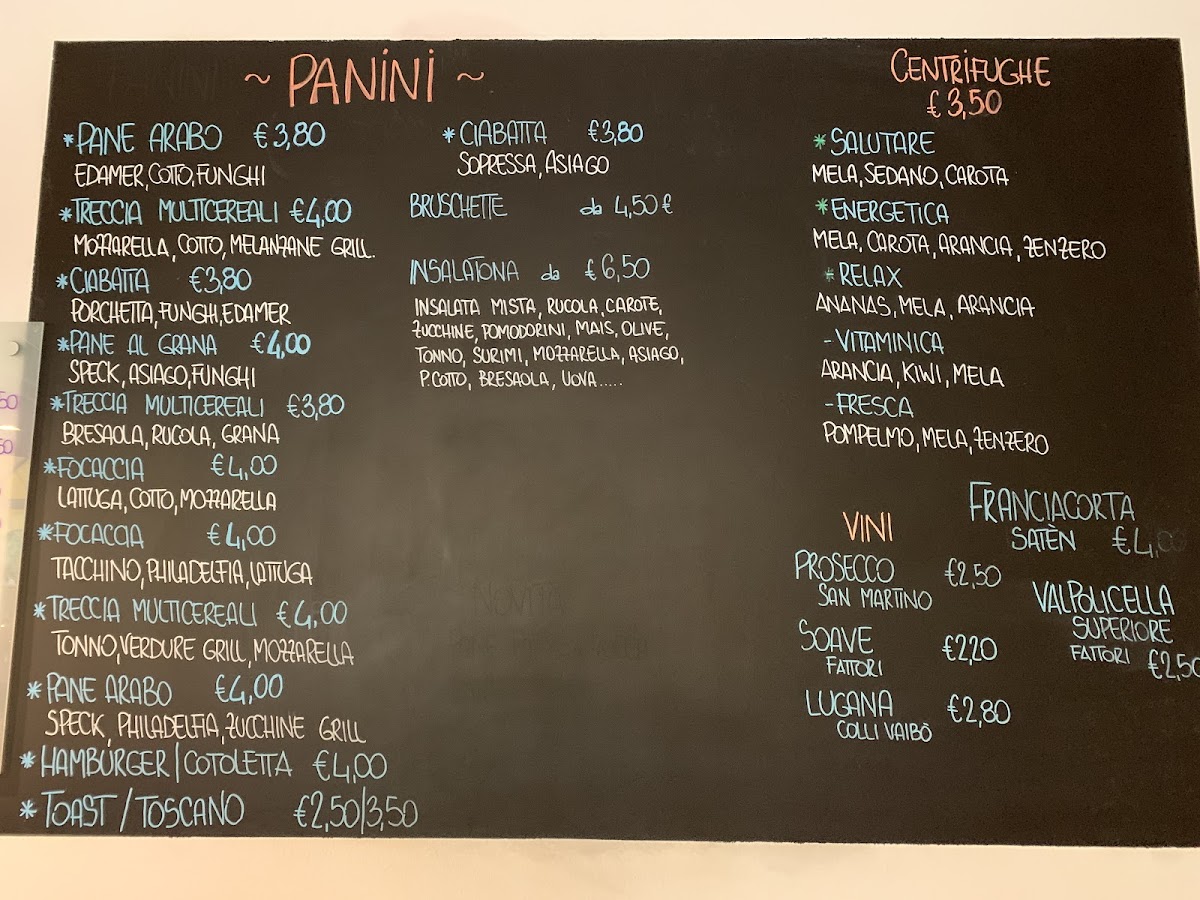 ~ PANINI ~
*PANE ARABO €3,80
EDAMER, COTTO, FUNGHI
*TRECCIA MULTICEREALI €4,00
MOZZARELLA, COTTO, MELANZANE GRILL.
*CIABATTA €3,80
PORCHETTA, FUNGHI, EDAMER
*PANE AL GRANA €4,00
SPECK, ASIAGO, FUNGHI
*TRECCIA MULTICEREALI €3,80
BRESAOLA, RUCOLA, GRANA
*FOCACCIA €4,00
LATTUGA, COTTO, MOZZARELLA
*FOCACCIA €4,00
TACCHINO, PHILADELFIA, LATTUGA
*TRECCIA MULTICEREALI €4,00
TONNO, VERDURE GRILL, MOZZARELLA
*PANE ARABO €4,00
SPECK, PHILADELFIA, ZUCCHINE GRILL
*HAMBURGER/COTOLETTA €4,00
*TOAST/TOSCANO €2,50/3,50
*CIABATTA €3,80
SOPRESSA, ASIAGO
BRUSCHETTE da 4,50€
INSALATONA da €6,50
INSALATA MISTA, RUCOLA, CAROTE,
ZUCCHINE, POMODORINI, MAIS, OLIVE,
TONNO, SURIMI, MOZZARELLA, ASIAGO,
P.COTTO, BRESAOLA, UOVA.....
NOVITA'
CENTRIFUGHE
€ 3,50
*SALUTARE
MELA, SEDANO, CAROTA
*ENERGETICA
MELA, CAROTA, ARANCIA, ZENZERO
*RELAX
ANANAS, MELA, ARANCIA
-VITAMINICA
ARANCIA, KIWI, MELA
-FRESCA
POMPELMO, MELA, ZENZERO
VINI
PROSECCO €2,50
SAN MARTINO
SOAVE €2,20
FATTORI
LUGANA €2,80
COLLI VAIBÒ
FRANCIACORTA
SATÈN €4,00
VALPOLICELLA
SUPERIORE
FATTORI €2,50